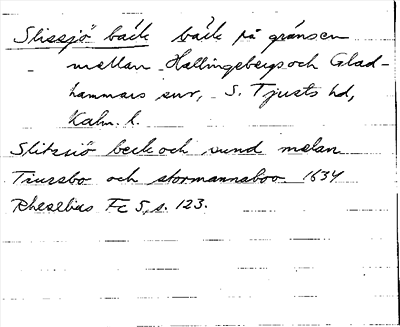 Slissjö bäck bäck på gränsen
mellan Hallingebergs och Glad-
hammars snr, S. Tjusts hd,
Kalm. l.
Slitzsiö beck och sund melan
Tiursbo och stormannaboo 1634
Rhezelius Fc 5, s. 123.